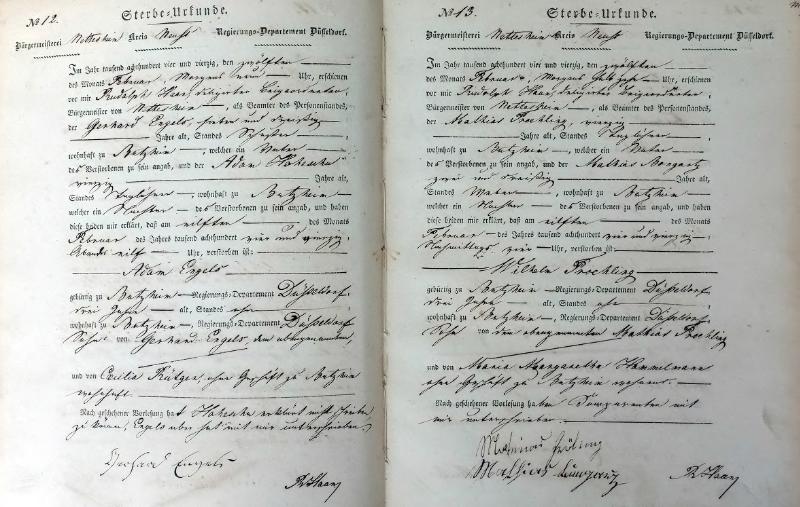 No 12.
Sterbe-Urkunde.
Bürgermeisterei Nettesheim Kreis Neuß Regierungs-Departement Düsseldorf.
Im Jahr tausend achthundert vier und vierzig, den zwölften
des Monats Februar, Morgens neun Uhr, erschienen
vor mir Rudolph Haas, delegirter Beigeordneter,
Bürgermeister von Nettesheim, als Beamter des Personenstandes,
der Gerhard Engels, sieben und dreißig
Jahre alt, Standes
wohnhaft zu Butzheim, welcher ein Vater
des Verstorbenen zu sein angab, und der Adam
vierzig Jahre alt,
Standes Taglöhner, wohnhaft zu Butzheim
welcher ein Nachbar des Verstorbenen zu sein angab, und haben
diese beiden mir erklärt, daß am eilften des Monats
Februar des Jahres tausend achthundert vier und vierzig,
Abends eilf Uhr, verstorben ist:
Adam Engels
gebürtig zu Butzheim Regierungs-Departement Düsseldorf
drei Jahre alt, Standes ohne
wohnhaft zu Butzheim, Regierungs-Departement Düsseldorf
Sohn von Gerhard Engels, dem obengenannten,
und von Cecilia Rütger, ohne Geschäft zu Butzheim
wohnhaft.
Nach geschehener Vorlesung hat erklärt nicht schreiben
zu können, Engels aber hat mit mir unterschrieben.
Gerhard Engels
R. Haas
No 13.
Sterbe-Urkunde.
Bürgermeisterei Nettesheim Kreis Neuß Regierungs-Departement Düsseldorf.
Im Jahr tausend achthundert vier und vierzig, den zwölften
des Monats Februar, Morgens halb zehn Uhr, erschienen
vor mir Rudolph Haas, delegirter Beigeordneter,
Bürgermeister von Nettesheim, als Beamter des Personenstandes,
der Mathias Froehling, vierzig
Jahre alt, Standes Taglöhner
wohnhaft zu Butzheim, welcher ein Vater
des Verstorbenen zu sein angab, und der Mathias
zwei und dreißig Jahre alt,
Standes, wohnhaft zu Butzheim
welcher ein Nachbar des Verstorbenen zu sein angab, und haben
diese beiden mir erklärt, daß am eilften des Monats
Februar des Jahres tausend achthundert vier und vierzig,
Nachmittags vier Uhr, verstorben ist:
Wilhelm Froehling
gebürtig zu Butzheim Regierungs-Departement Düsseldorf
drei Jahre alt, Standes ohne
wohnhaft zu Butzheim, Regierungs-Departement Düsseldorf
Sohn von dem obengenannten Mathias Froehling
und von Maria Margaretha Hammelmann
ohne Geschäft zu Butzheim wohnend.
Nach geschehener Vorlesung haben Comparenten mit
mir unterschrieben.
Mathias
R. Haas